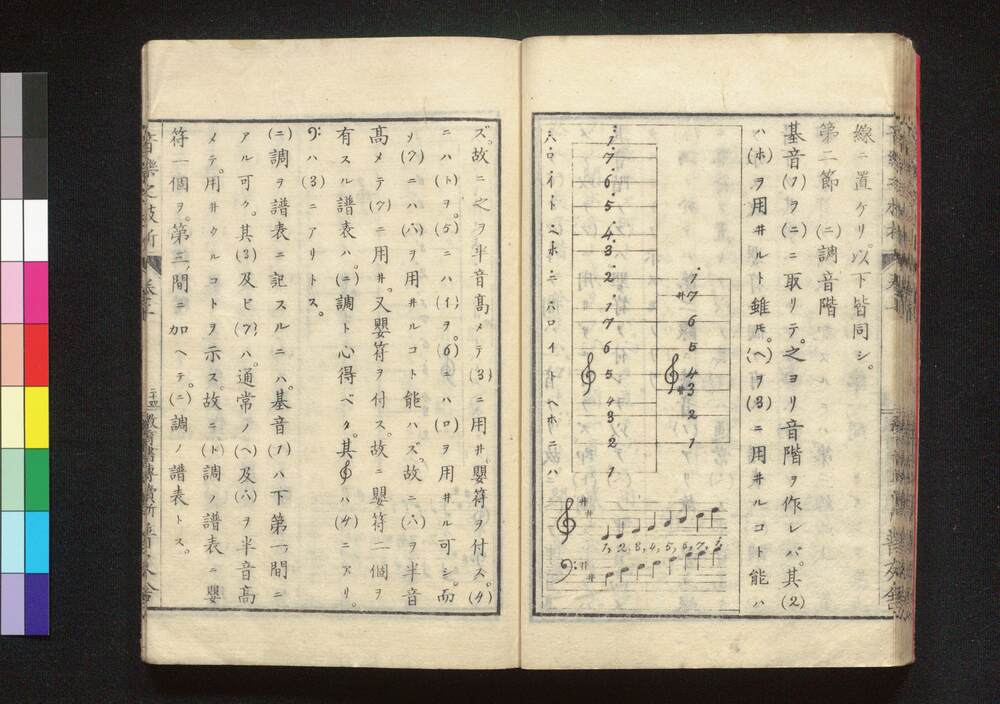 線ニ置ケリ。以下皆同シ。
第二節 (ニ)調音階
基音(1)ヲ(ニ)ニ取リテ。之ヨリ音階ヲ作レバ。其(2)
ハ(ホ)ヲ用井ルト雖𪜈。(ヘ)ヲ(3)ニ用井ルコト能ハ
1 7 6 5 4 3 2 1
♯7 ♯3
1 7 6 5 4 3 2 1 7 6 5 4 3 2 1
ハ ロ イ ト ヘ ホ ニ ハ ロ イ ト ヘ ホ ニ ハ
1, 2, 3, 4, 5, 6, 7, 1
ズ。故ニ之ヲ半音高メテ(3)ニ用井。嬰符ヲ付ス。(4)
ニハ(ト)ヲ。(5)ニハ(イ)ヲ。(6)ニハ(ロ)ヲ用井ル可シ。而
ソ(7)ニハ(ハ)ヲ用井ルコト能ハズ。故ニ(ハ)ヲ半音
高メテ(7)ニ用井。又嬰符ヲ付ス。故ニ嬰符二個ヲ
有スル譜表ハ。(ニ)調ト心得ベク。其𝄞ハ(4)ニアリ。
𝄢ハ(3)ニアリトス。
(ニ)調ヲ譜表ニ記スルニハ。基音(1)ハ下第一間ニ
アル可ク。其(3)及ビ(7)ハ。通常ノ(ヘ)及(ハ)ヲ半音高
メテ。用井タルコトヲ示ス。故ニ(ト)調ノ譜表ニ嬰
符一個ヲ。第三間ニ加ヘテ。(ニ)調ノ譜表トス。
音樂之枝折